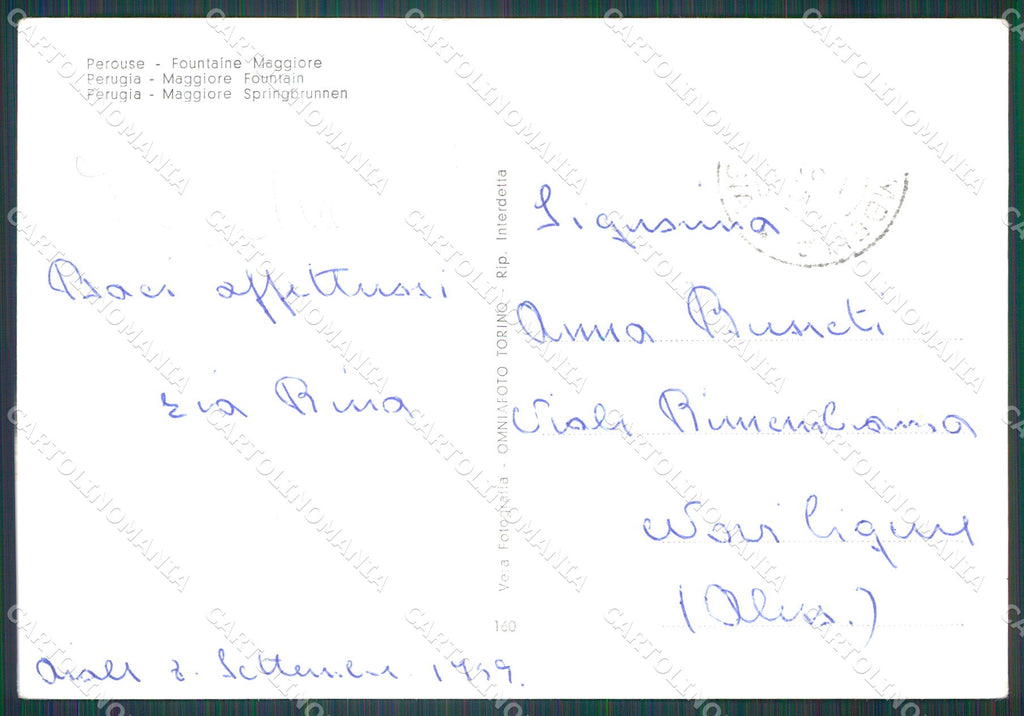 Perouse - Fountaine Maggiore
Perugia - Maggiore Fountain
Perugia - Maggiore Springbrunnen
Baci affettuosi
zia Rina
Settembre 1959.
Vera Fotografia - OMNIAFOTO TORINO - Rip. Interdetta
160
Signorina
Anna Busseti
Viale Rimembranza
Novi Ligure
(Aless.)
CARTOLINOMANIA